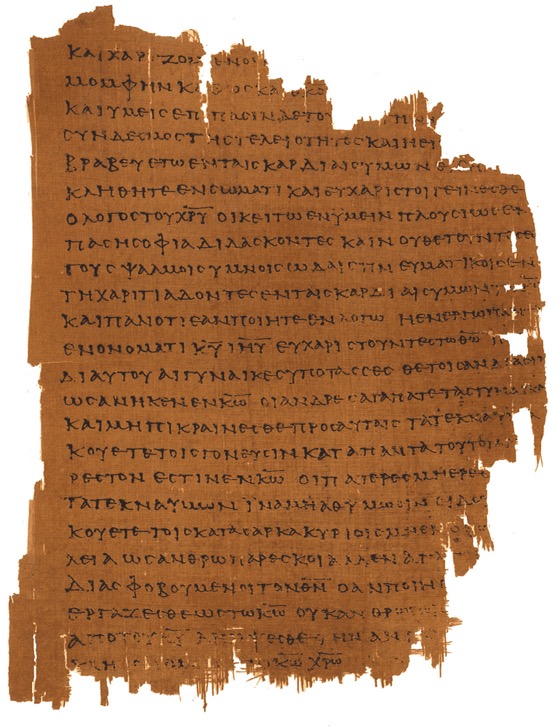 ΚΑΙ ΧΑΡΙΖΟΜΕΝΟΙ
ΜΟΜΦΗΝ
ΚΑΙ ΥΜΕΙϹ ΕΠΙ ΠΑϹΙΝ ΔΕ ΤΟΥ
ϹΥΝΔΕϹΜΟϹ ΤΗϹ ΤΕΛΕΙΟΤΗΤΟϹ ΚΑΙ Η ΕΙ
ΒΡΑΒΕΥΕΤΩ ΕΝ ΤΑΙϹ ΚΑΡΔΙΑΙϹ ΥΜΩΝ
ΚΛΗΘΗΤΕ ΕΝ ϹΩΜΑΤΙ ΚΑΙ ΕΥΧΑΡΙϹΤΟΙ ΓΕΙΝΕϹΘΕ
Ο ΛΟΓΟϹ ΤΟΥ Χ̅Ρ̅Υ̅ ΟΙΚΕΙΤΩ ΕΝ ΥΜΕΙΝ ΠΛΟΥϹΙΩϹ ΕΝ
ΠΑϹΗ ϹΟΦΙΑ ΔΙΔΑϹΚΟΝΤΕϹ ΚΑΙ ΝΟΥΘΕΤΟΥΝΤΕϹ
ΤΟΥϹ ΨΑΛΜΟΙϹ ΥΜΝΟΙϹ ΩΔΑΙϹ ΠΝΕΥΜΑΤΙΚΟΙϹ ΕΝ
ΤΗ ΧΑΡΙΤΙ ΑΔΟΝΤΕϹ ΕΝ ΤΑΙϹ ΚΑΡΔΙΑΙϹ ΥΜΩΝ
ΚΑΙ ΠΑΝ Ο ΤΙ ΕΑΝ ΠΟΙΗΤΕ ΕΝ ΛΟΓΩ Η ΕΝ ΕΡΓΩ
ΕΝ ΟΝΟΜΑΤΙ Κ̅Υ̅ Ι̅Η̅Υ̅ ΕΥΧΑΡΙϹΤΟΥΝΤΕϹ ΤΩ Θ̅Ω̅
ΔΙ ΑΥΤΟΥ ΑΙ ΓΥΝΑΙΚΕϹ ΥΠΟΤΑϹϹΕϹΘΕ ΤΟΙϹ ΑΝΔΡΑϹΙΝ
ΩϹ ΑΝΗΚΕΝ ΕΝ Κ̅Ω̅ ΟΙ ΑΝΔΡΕϹ ΑΓΑΠΑΤΕ ΤΑϹ ΓΥΝΑΙΚΑϹ
ΚΑΙ ΜΗ ΠΙΚΡΑΙΝΕϹΘΕ ΠΡΟϹ ΑΥΤΑϹ ΤΑ ΤΕΚΝΑ ΥΠΑ
ΚΟΥΕΤΕ ΤΟΙϹ ΓΟΝΕΥϹΙΝ ΚΑΤΑ ΠΑΝΤΑ ΤΟΥΤΟ
ΡΕϹΤΟΝ ΕϹΤΙΝ ΕΝ Κ̅Ω̅ ΟΙ ΠΑΤΕΡΕϹ ΜΗ ΕΡΕΘ
ΤΑ ΤΕΚΝΑ ΥΜΩΝ ΙΝΑ ΜΗ ΑΘΥΜΩϹΙΝ ΟΙ ΔΟΥ
ΚΟΥΕΤΕ ΤΟΙϹ ΚΑΤΑ ϹΑΡΚΑ ΚΥΡΙΟΙϹ ΜΗ ΕΝ
ΛΕΙΑ ΩϹ ΑΝΘΡΩΠΑΡΕϹΚΟΙ ΑΛΛ ΕΝ ΑΠΛ
ΔΙΑϹ ΦΟΒΟΥΜΕΝΟΙ ΤΟΝ Θ̅Ν̅ Ο ΑΝ ΠΟΙΗ
ΕΡΓΑΖΕϹΘΕ ΩϹ ΤΩ Κ̅Ω̅ ΟΥΚ ΑΝΘΡ
ΑΠΟ ΤΟΥ Κ̅Υ̅
Κ̅Ω̅ Χ̅Ρ̅Ω̅